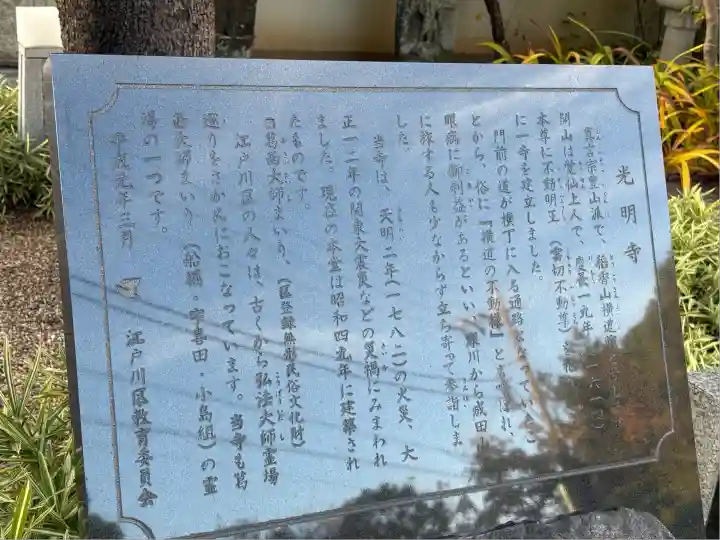 光明寺
真言宗豊山派で、稲香山横道院
開山は覚仙上人で、慶長一九年（一六一四）
本尊に不動明王（雷切不動尊）を
に一寺を建立しました。
門前の道が横丁に入る通路になっていたこ
とから、俗に『横道の不動様』とよばれ、
眼病に御利益があるといい、川から成田
に旅する人も少なからず立ち寄って参詣しま
した。
当寺は、天明二年（一七八二）の火災、大
正一二年の関東大震災などの災禍にみまわれ
ました。現在の本堂は昭和四九年に建築され
たものです。
葛西大師まいり、（区登録無形民俗文化財）
江戸川区の人々は、古くから弘法大師霊場
巡りをさかんにおこなっています。当寺も葛
西大師まいり（船堀・宇喜田・小島組）の霊
場の一つです。
平成元年三月
江戸川区教育委員会